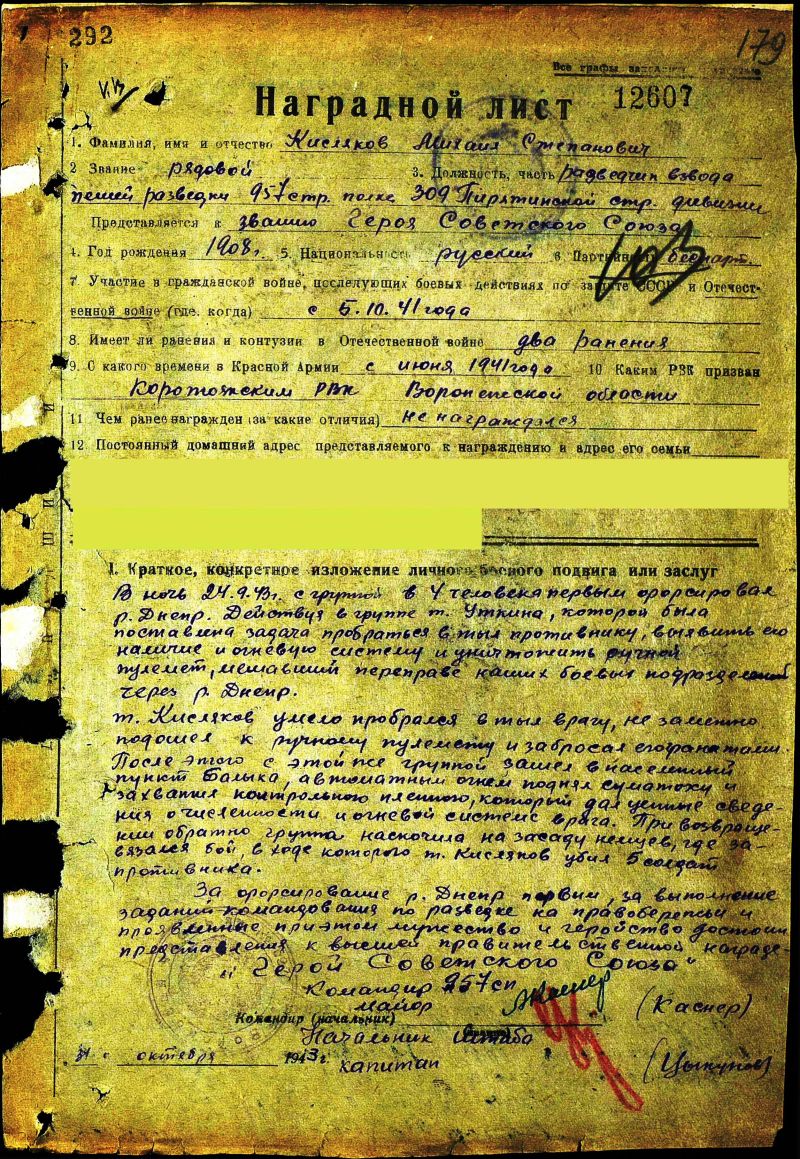 292
179
Все графы
12607
Наградной лист
1. Фамилия, имя и отчество Кисляков Михаил Степанович
2 Звание рядовой 3. Должность, часть разведчик взвода
пешей разведки 957 стр. полка 309 Пирятинской стр. дивизии
Представляется к званию Героя Советского Союза
4. Год рождения 1908 г. 5. Национальность русский 6 Партийность беспарт.
7 Участие в гражданской войне, последующих боевых действиях по защите СССР и Отечест-
венной войне (где. когда) с 5.10.41 года
8. Имеет ли ранения и контузии в Отечественной войне два ранения
9. С какого времени в Красной Армии с июня 1941 года 10 Каким РВК призван
Коротоякским РВК Воронежской области
11 Чем ранее награжден (за какие отличия) не награждался
12. Постоянный домашний адрес представляемого к награждению и адрес его семьи
I. Краткое, конкретное изложение личного боевого подвига или заслуг
В ночь 24.9.43г. с группой в 4 человека первым форсировал
р. Днепр. Действуя в группе т. Уткина, которой была
поставлена задача пробраться в тыл противнику, выявить его
наличие и огневую систему и уничтожить ручной
пулемет, мешавший переправе наших боевых подразделений
через р. Днепр.
т. Кисляков умело пробрался в тыл врагу, не заметно
подошел к ручному пулемету и забросал его гранатами.
После этого с этой же группой зашел в населенный
пункт Балыка, автоматным огнем поднял суматоху и
захватил контрольного пленного, который дал ценные сведе-
ния о численности и огневой системе врага. При возвраще-
нии обратно группа наскочила на засаду немцев, где за-
вязался бой, в ходе которого т. Кисляков убил 5 солдат
противника.
За форсирование р. Днепр первым, за выполнение
заданий командования по разведке на правобережьи и
проявленные при этом мужество и геройство достоин
представления к высшей правительственной награде-
"Герой Советского Союза"
Командир 957 сп
майор (Каснер)
Командир (начальник)
Начальник штаба
октября 1943г. капитан (Цыкунов)